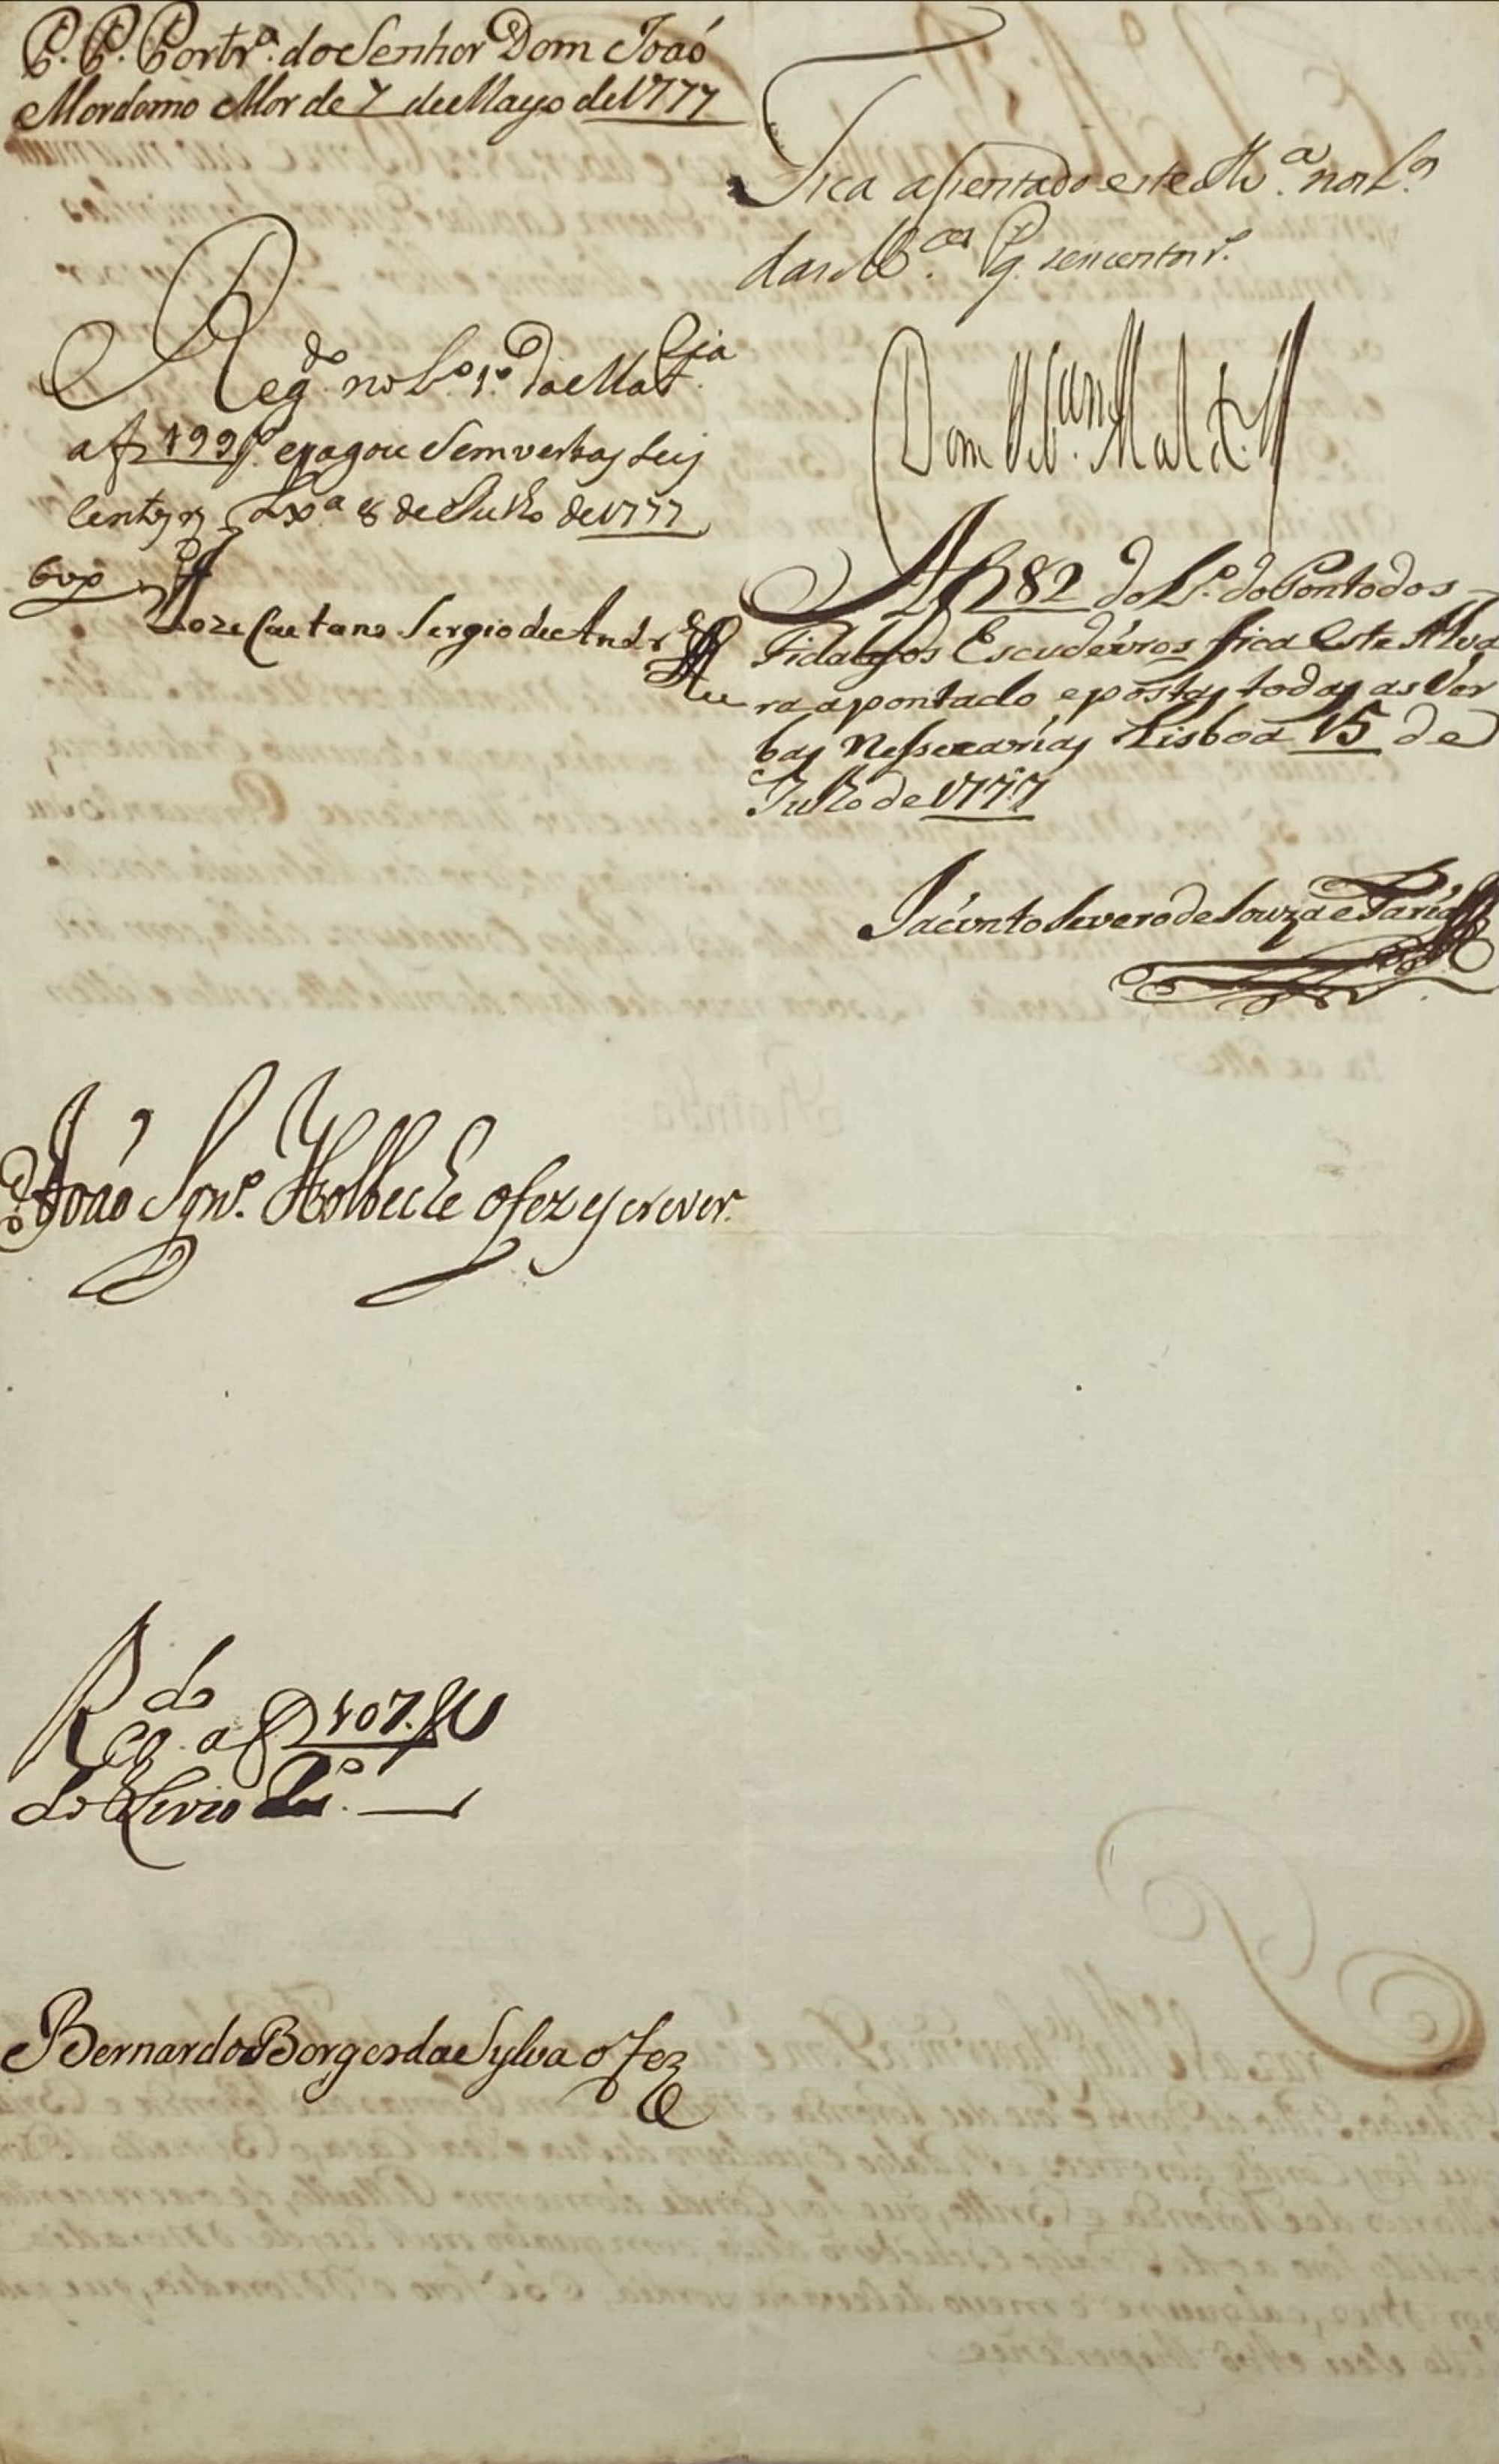 P. P. Portr.ª do Senhor Dom Joaó
Mordomo Mor de 7 de Mayo de 1777
Fica assentado este Alv.ª nos L.os
das M.ces Pg. seiscentos r.s
Reg.do no L.o 1.o da Mat.
a f 199 e pagou sem verbas seis
centos rs Lx.a 8 de Julho de 1777
Joze Caetano Sergio de Andr.e
Af 82 do L.o do Ponto dos
Fidalgos Escudeiros fica este Alva
ra apontado e postas todas as Ver
bas Nessecarias Lisboa 15 de
Julho de 1777
Jacinto Severo de Souza e Faria
D. João Ign.o Holbeche o fez escrever.
Reg.do a f 107.
do Livro
Bernardo Borges da Sylva o fez